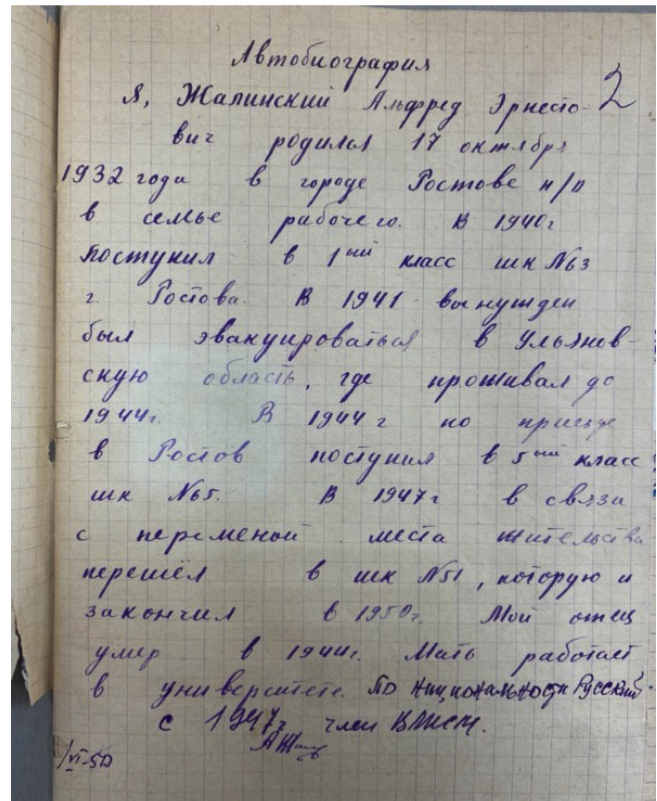 Автобиография
2
Я, Жалинский Альфред Эрнесто-
вич родился 17 октября
1932 года в городе Ростове н/Д
в семье рабочего. В 1940г
поступил в 1ый класс шк №63
г. Ростова. В 1941 вынужден
был эвакуироваться в Ульянов-
скую область, где проживал до
1944г. В 1944г по приезде
в Ростов поступил в 5ый класс
шк №65. В 1947г в связи
с переменой места жительства
перешёл в шк №51, которую и
закончил в 1950г. Мой отец
умер в 1944г. Мать работает
в университете. По национальности Русский.
с 1947г член ВЛКСМ.
VI-50